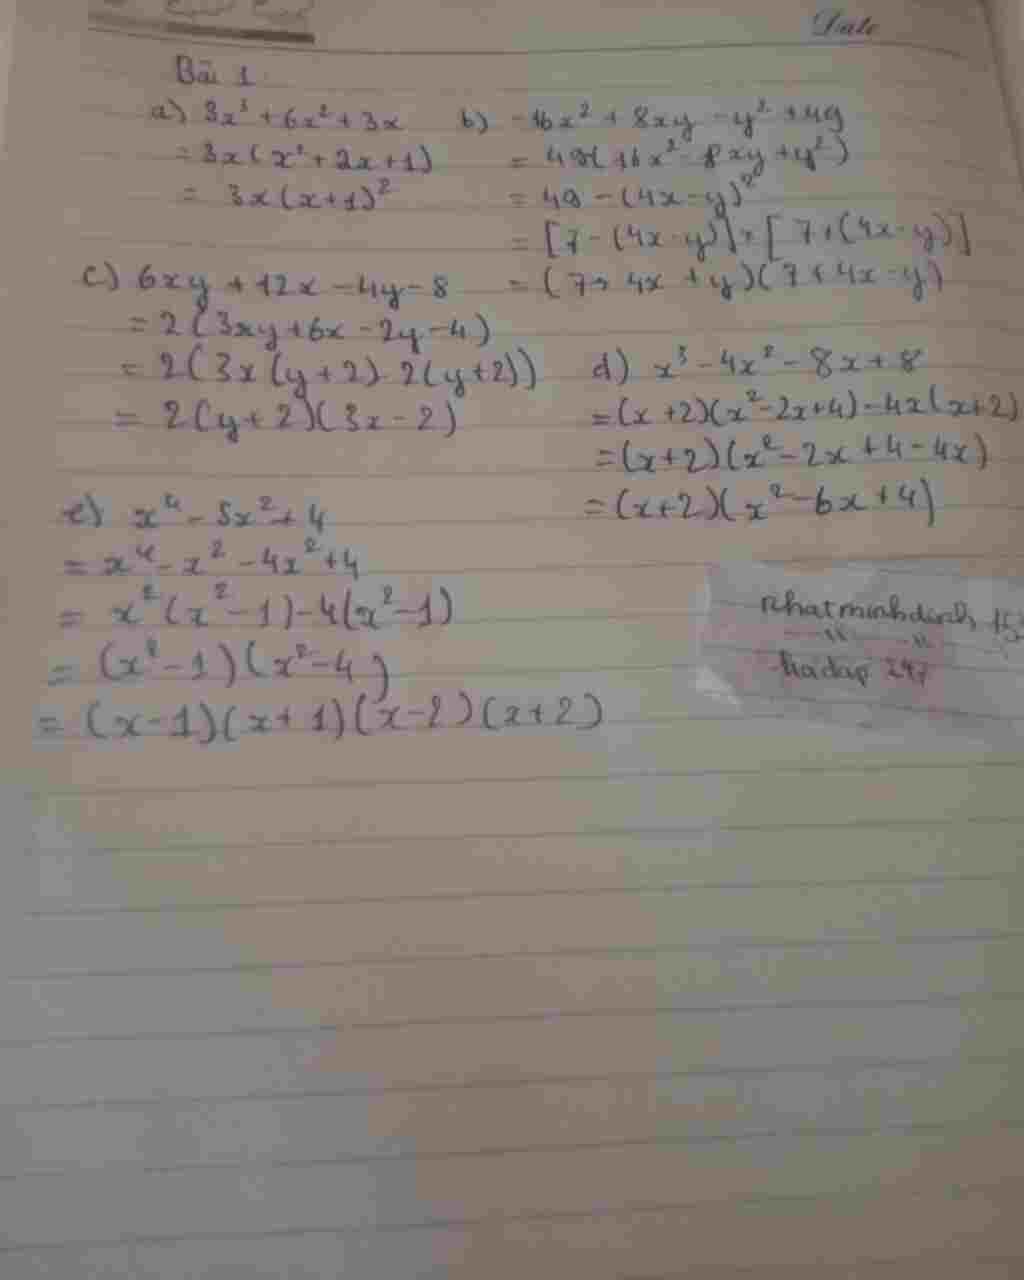 Date
Bài 1
a) 3x³ + 6x² + 3x
= 3x(x² + 2x + 1)
= 3x(x+1)²
b) -16x² + 8xy - y² + 49
= 49-(16x² - 8xy + y²)
= 49 - (4x - y)²
= [7 - (4x - y)] · [7 + (4x - y)]
= (7 - 4x + y)(7 + 4x - y)
c) 6xy + 12x - 4y - 8
= 2(3xy + 6x - 2y - 4)
= 2(3x(y+2) - 2(y+2))
= 2(y+2)(3x - 2)
d) x³ - 4x² - 8x + 8
= (x+2)(x² - 2x + 4) - 4x(x+2)
= (x+2)(x² - 2x + 4 - 4x)
= (x+2)(x² - 6x + 4)
e) x⁴ - 5x² + 4
= x⁴ - x² - 4x² + 4
= x²(x² - 1) - 4(x² - 1)
= (x² - 1)(x² - 4)
= (x-1)(x+1)(x-2)(x+2)
nhatminhdinh